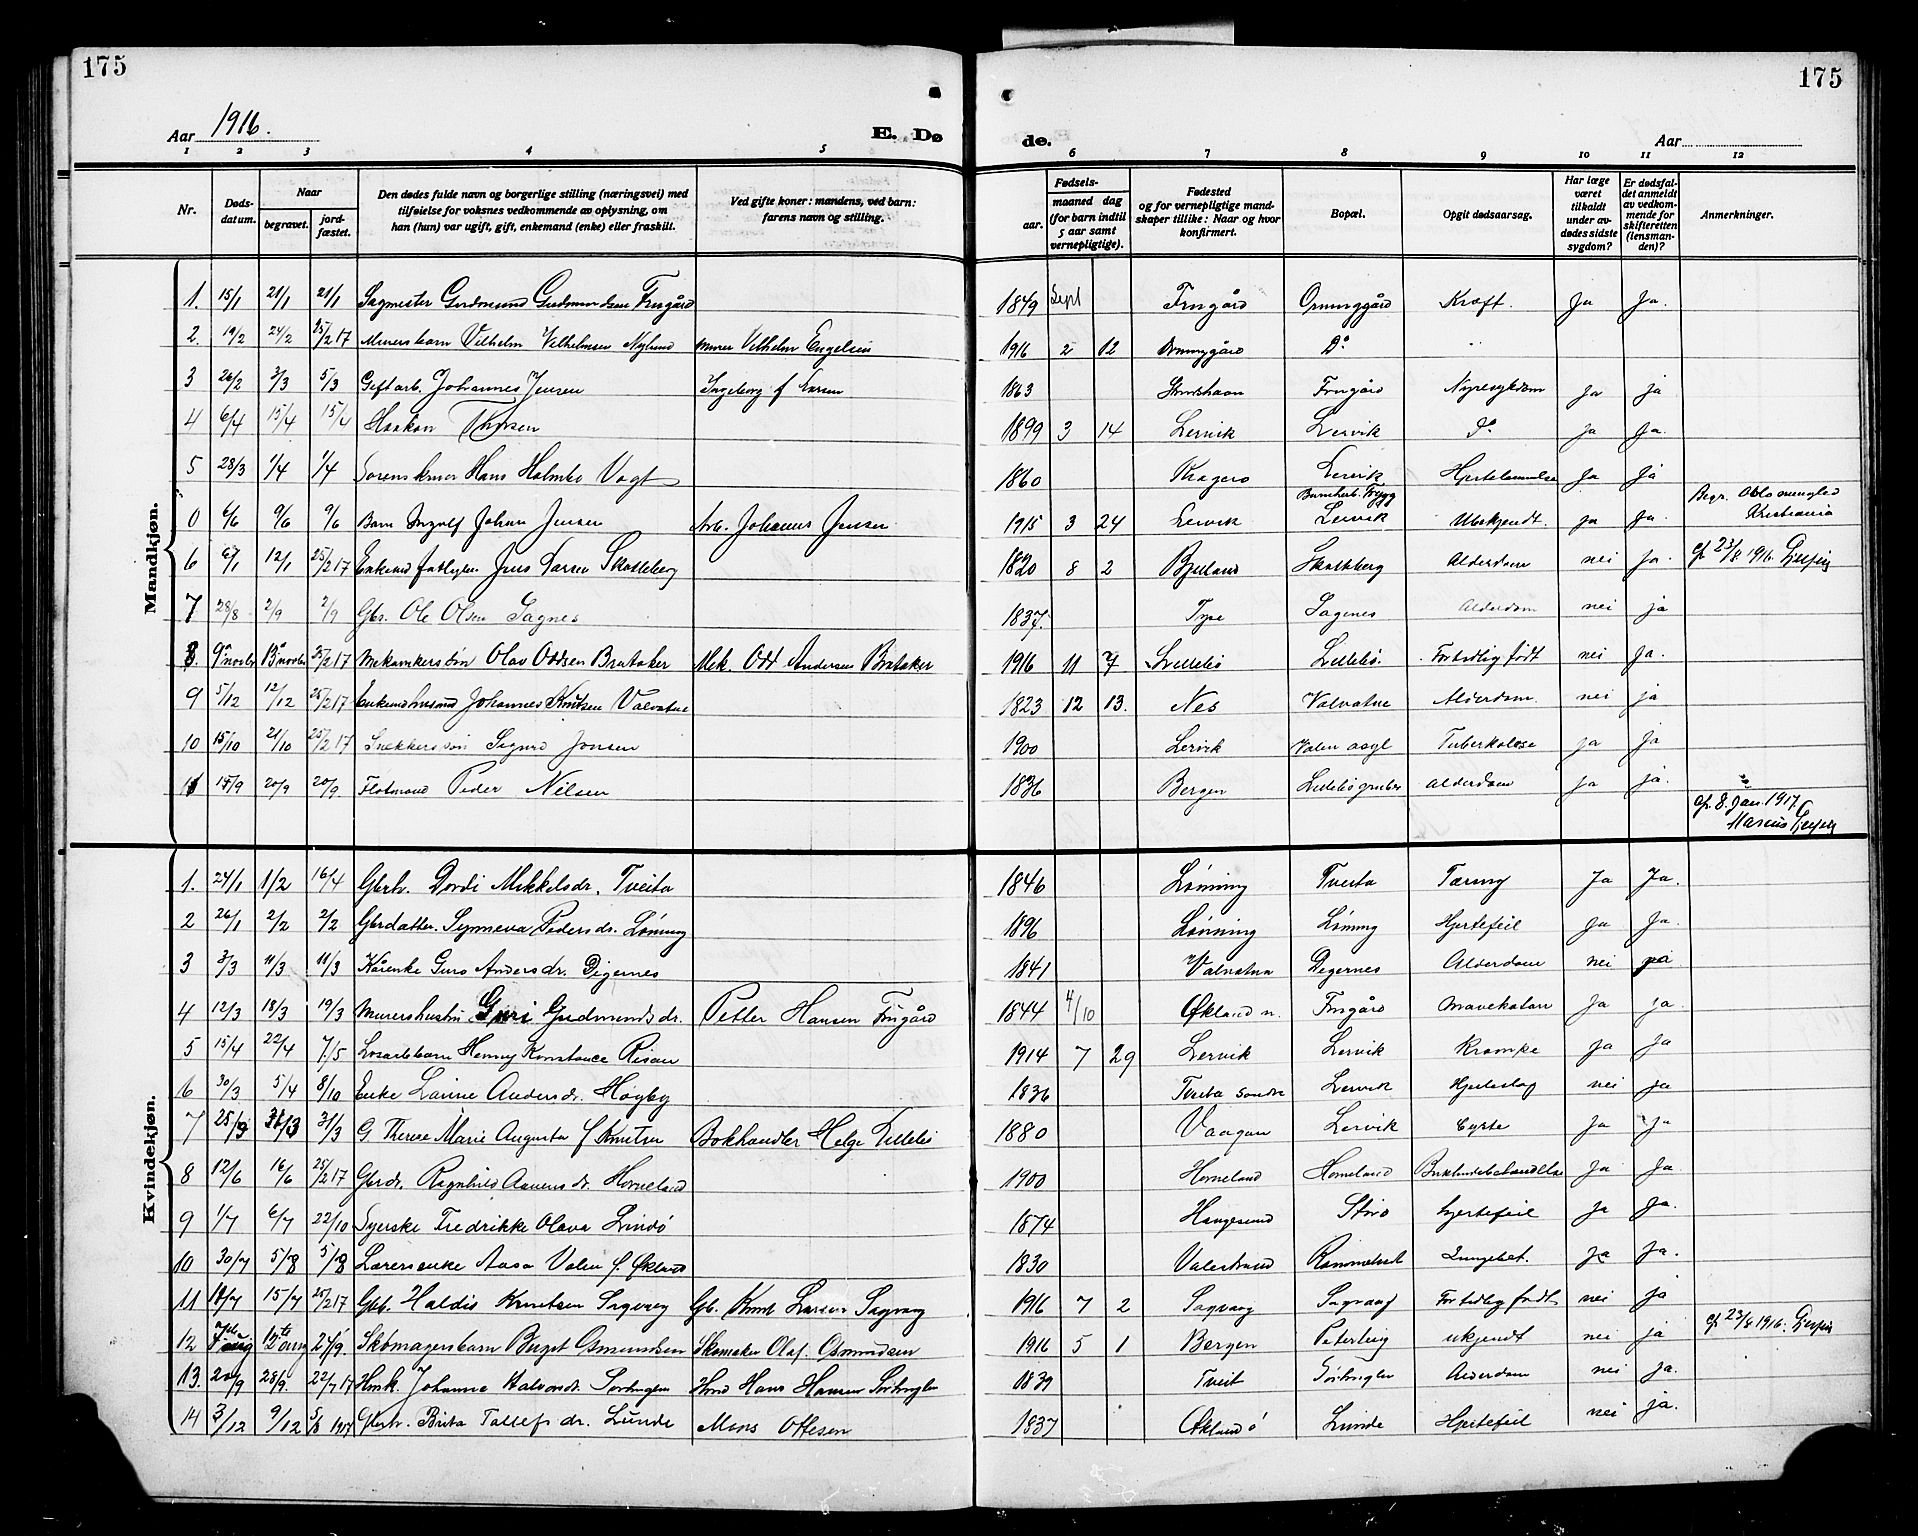 175
175
Aar 1916.
E. Dø
de.
Aar
1 2 3 4 5 6 7 8 9 10 11 12
Nr.
Døds-datum.
Naar
begravet.
jord-fæstet.
Den dødes fulde navn og borgerlige stilling (næringsvei) med
tilføielse for voksnes vedkommende av oplysning, om
han (hun) var ugift, gift, enkemand (enke) eller fraskilt.
Ved gifte koner: mandens, ved barn:
farens navn og stilling.
Fødsels-
aar.
maaned dag
(for barn indtil
5 aar samt
vernepligtige).
Fødested
og for vernepligtige mand-
skaper tillike: Naar og hvor
konfirmert.
Bopæl.
Opgit dødsaarsag.
Har læge
været
tilkaldt
under av-
dødes sidste
sygdom?
Er dødsfal-
det anmeldt
av vedkom-
mende for
skifteretten
(lensman-
den)?
Anmerkninger.
Mandkjøn.
1. 15/1 21/1 21/1 Sagmester Gudmund Gudmundsen Frugård 1849 Sept Frugård Kræft. Ja Ja.
2. 19/2 24/2 25/2 17 Murersbarn Vilhelm Vilhelmsen Nylund Murer Vilhelm Engelsen 1916 2 12 Do
3 26/2 3/3 5/3 Gift arb. Johannes Jensen Ingeborg f. Larsen 1863 Frugård Nyresykdom ja ja
4 6/4 15/4 15/4 Haakon Thorsen 1899 3 14 Lervik Lervik Do ja Ja.
5 28/3 1/4 1/4 Sorenskriver Hans Holmbo Vogt 1860 Kragerø Lervik Hjertelammelse Ja Ja
0 6/6 9/6 9/6 Barn Ingolf Johan Jensen Arb. Johannes Jensen 1915 3 24 Lervik Barnehh. Trygg Lervik Ubekjendt. ja Ja. Begr. Kristiania
6 6/1 12/1 25/2 17 Enkemd fattiglem Jens Larsen Skatteberg 1820 8 2 Skatteberg Alderdom nei Ja. cf 23/8 1916
7 28/8 2/9 2/9 Gbr. Ole Olsen Sagnes 1837. Tyse Sagenes Alderdom nei ja
8. 9 novbr 13 novbr 25/2 17 Mekanikersbn Olav Oddsen Brataker Mek. Odd Andersen Brataker 1916 11 Lillebø Lillebø. For tidlig født nei Ja.
9 5/12 12/12 25/2 17 Enkemd husmd Johannes Knutsen Valvatne 1823 12 13. Nes Valvatne Alderdom. nei ja
10 15/10 21/10 25/2 17 Snekkersøn Sigurd Jonsen 1900 Lervik Valen asyl Tuberkolose ja Ja
11 15/9 20/9 20/9. Flotmand Peder Nilsen 1836 Bergen Lillebø gruber Alderdom Ja ja. cf. 8. Jan. 1917
Kvindekjøn.
1. 24/1 1/2 16/4 Gbrh. Dordi Mikkelsdr. Tveita 1846 Lønning Tveita Tæring Ja Ja.
2 26/1 2/2 2/2 Gbrdatter. Synneva Pedersdr. Lønning 1896 Lønning Lønning Hjertefeil Ja Ja.
3 3/3 11/3 11/3 Kårenke Guro Andersdr. Digernes 1841 Valvatna Degernes Alderdom nei ja
4 12/3 18/3 19/3 Murershustru Guri Gudmundsdr. Petter Hansen Frugård 1844 4/10 Økland n. Frugård Mavekatarr Ja ja.
5 15/4 22/4 7/5 Losarbbarn Henny Konstance Risan 1914 7 29 Lervik Lervik Krampe Ja Ja
6 30/3 5/4 8/10 Enke Larine Andersdr. Høyby 1836 Tveita Søndre Lervik Hjerteslag nei ja
7 25/3 31/3 31/3 G Therese Marie Augusta f Knutsen Bokhandler Helge Lillebø 1880 Vaagan Lervik Cyste Ja Ja
8 12/6 16/6 25/2 17 Gbrdr. Ragnhild Aanensdr. Horneland 1900 Horneland Horneland Ja Ja.
9 1/7 6/7 22/10 Syerske Fredrikke Olava Lindö 1874 Haugesund Stord hjertefeil Ja Ja.
10 30/7 5/8 5/8 Lærersenke Aasa Valen f. Økland 1830 Valestrand Rommetveit Lungebet. Ja Ja.
11 10/7 15/7 25/2 17 Gbb. Haldis Knutsen Sagvaag Gb. Knut Larsen Sagvaag 1916 7 2 Sagvaag Sagvaag For tidlig født nei ja
12 24/9 Skomagersbarn Birgit Osmundsen Skomaker Olaf Osmundsen 1916 5 1 Bergen ukjendt nei ja cf 23/8 1916.
13. 20/9 28/9. 22/7 17 Hmk. Johanna Halvorsdr. Sørhuglen Hmd Hans Hansen Sørhuglen 1839 Tveit Sørhuglen Alderdom nei Ja.
14 3/12 9/12 5/8 1917 Gbrh. Brita Tollefsdr. Lunde Mons Ottesen 1837 Økland ö Lunde Hjertefeil nei ja.